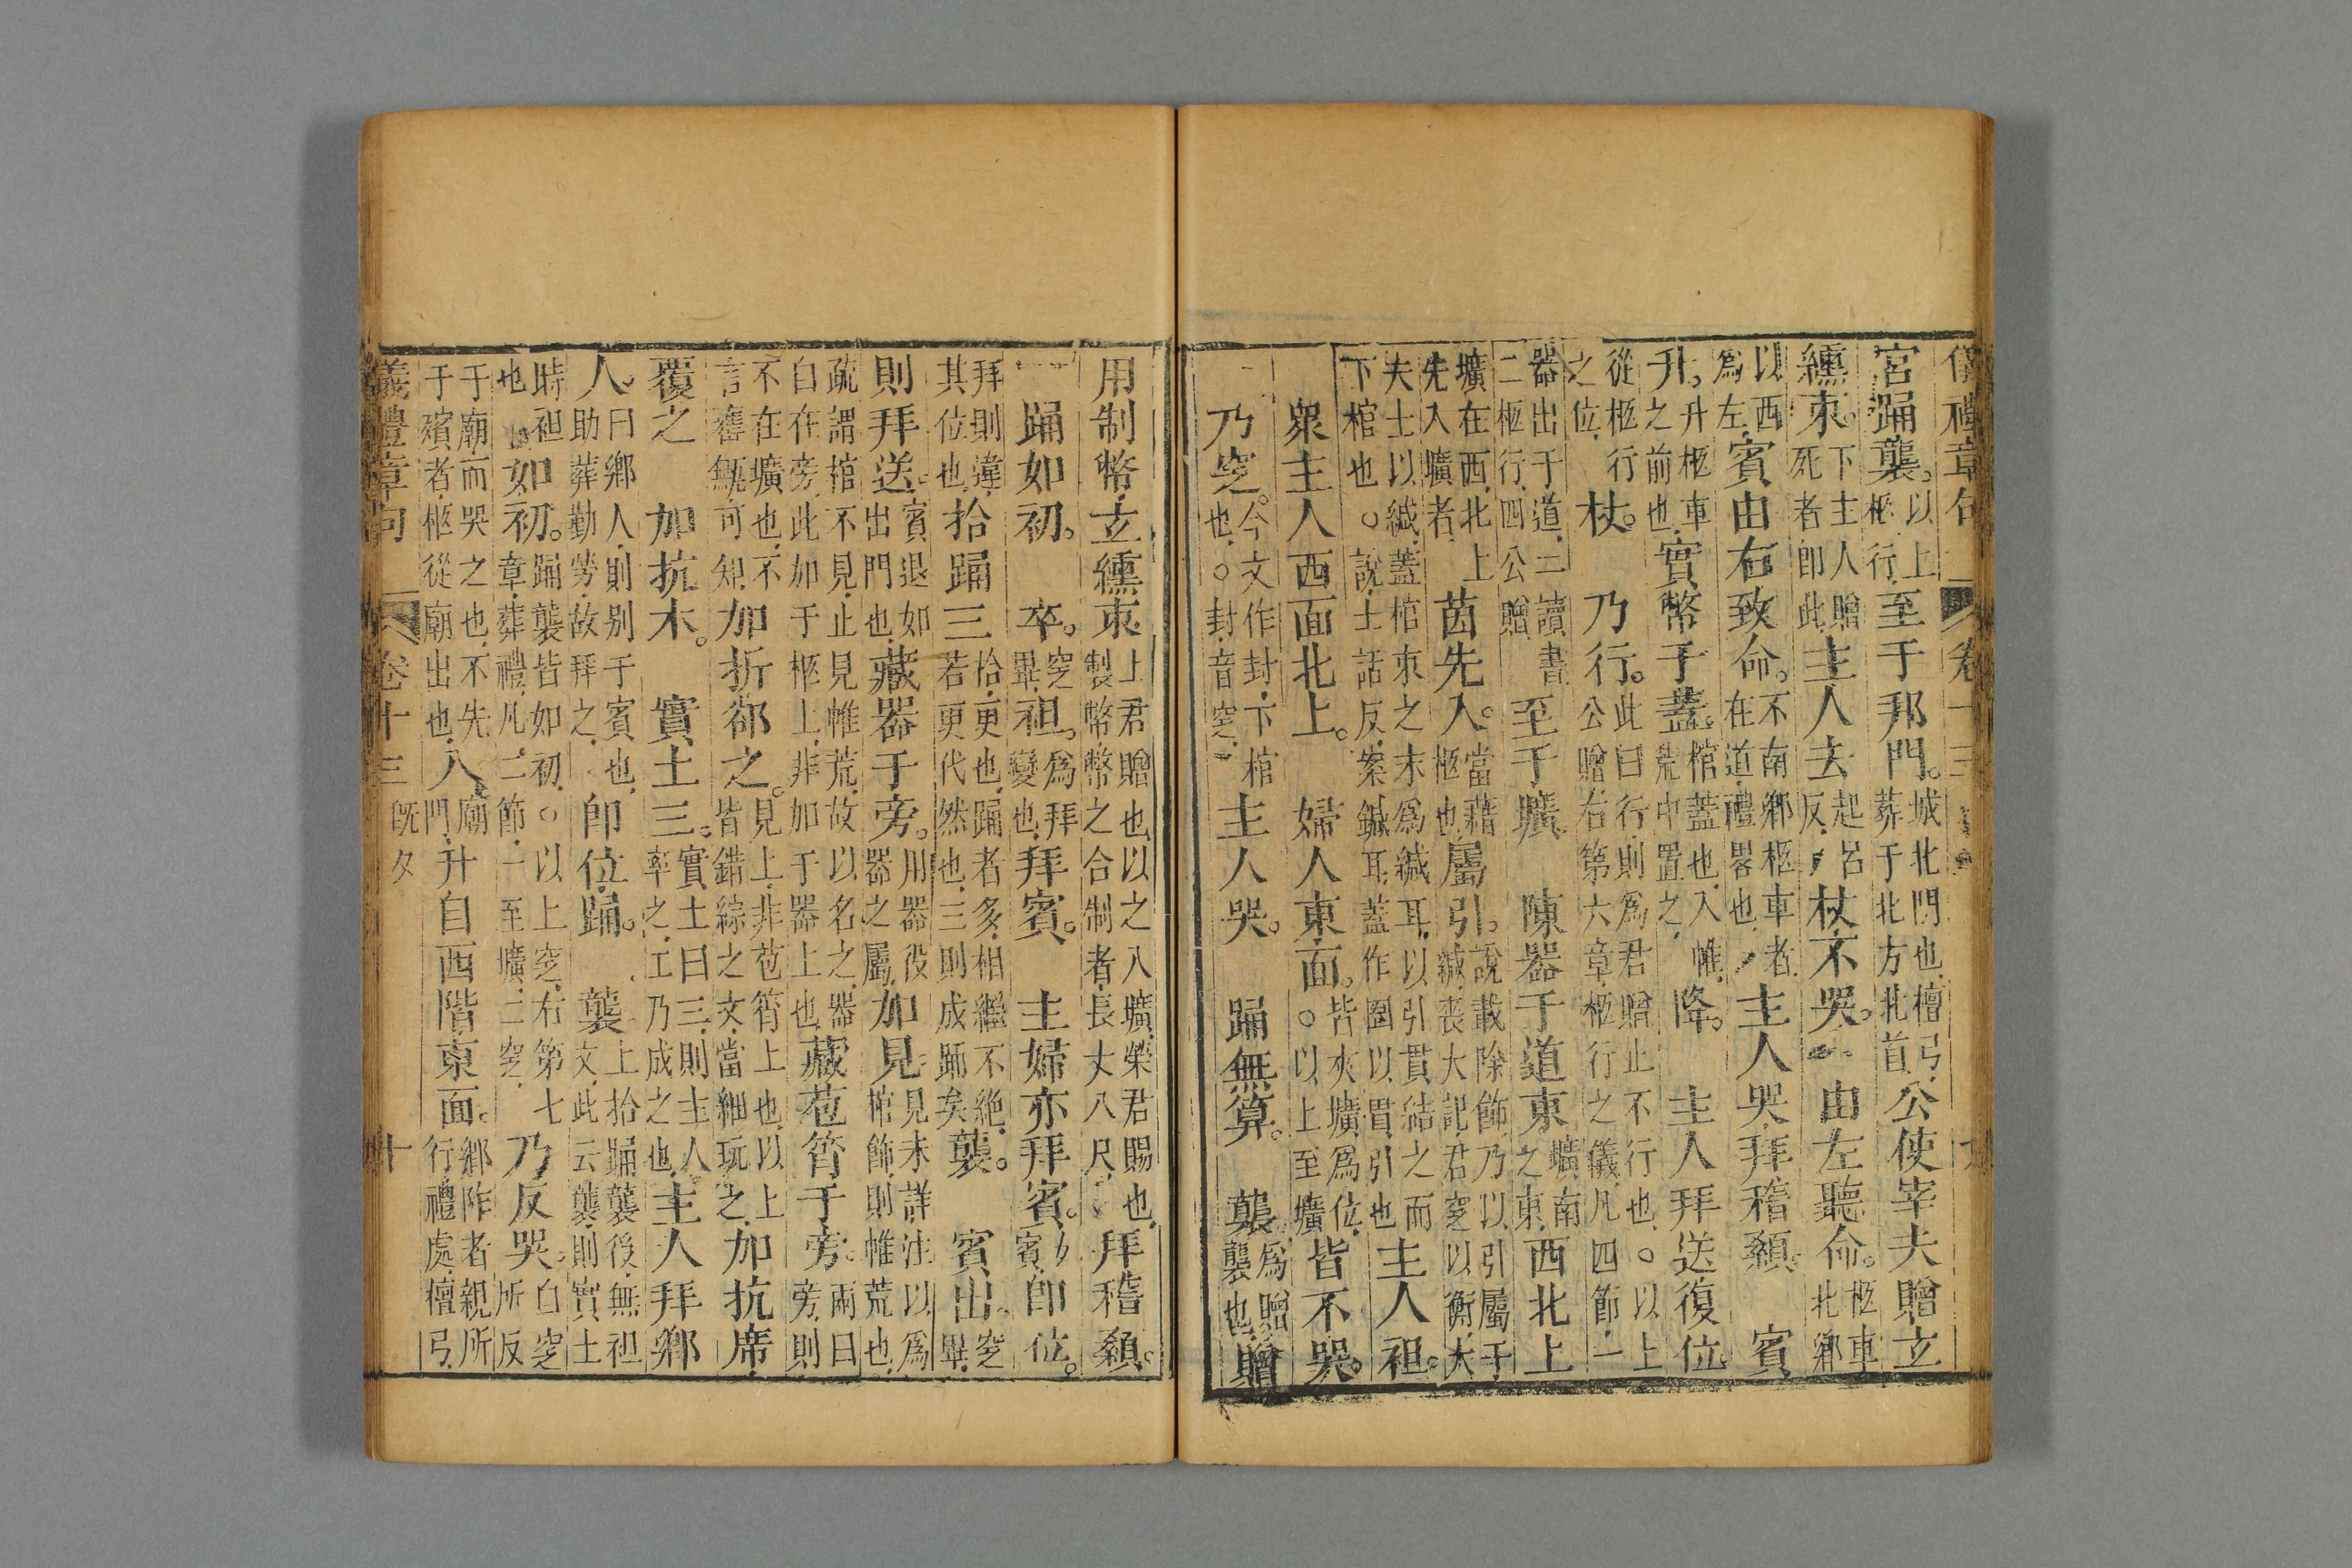 儀禮章句 卷十三 九
宮踊襲。以上柩行至于邦門。城北門也檀弓葬于北方北首公使宰夫贈玄
纁束。下主人贈死者即此主人去起呂反杖不哭。由左聽命。柩車北鄉
以西為左賓由右致命。不南鄉柩車者在道禮畧也主人哭拜稽顙賓
升。升柩車之前也實幣于蓋。棺蓋也入帷荒中置之降。主人拜送復位
從柩行之位杖。乃行。此曰行則為君贈止不行也○以上公贈右第六章柩行之儀凡四節一
器出于道二讀書二柩行四公贈至于壙陳器于道東壙南之東西北上
壙在西北上先入壙者茵先入。當藉柩也屬引。說載除飾乃以引屬于緘喪大記君窆以衡大
夫士以緘蓋棺束之末為緘耳以引貫結之而下棺也○說士話反案鍼耳蓋作圏以貫引也主人袒。
衆主人西面北上。婦人東面。皆夾壙為位○以上至壙皆不哭。
乃窆。今文作封下棺也○封音窆主人哭。踊無算。襲為贈襲也贈
用制幣玄纁束上君贈也以之入壙榮君賜也製幣幣之合制者長丈八尺拜稽顙。
踊如初。卒。窆畢袒。為拜變也拜賓。主婦亦拜賓。女賓即位。
拜則違其位也拾踊三拾更也踊者多相繼不絕若更代然也三則成踊矣襲。賓出。窆畢
則拜送。賓退如出門也藏器于旁。用器役器之屬加見。見未詳注以為棺飾則帷荒也
疏謂棺不見止見帷荒故以名之器自在旁此加于柩上非加于器上也藏苞筲于旁。兩曰旁則
不在壙也不言罋甒可知加折卻之。見上非苞筲上也以上皆錯綜之文當細玩之加抗席
覆之加抗木。實土三。實土曰三則主人率之工乃成之也主人拜鄉
人。曰鄉人則别于賓也助葬勤勞故拜之即位踊。襲上拾踊襲後無袒文此云襲則實土
時袒也如初。踊襲皆如初○以上窆右第七章葬禮凡二節一至壙二窆乃反哭。自窆所反
于廟而哭之也不先于殯者柩從廟出也入廟門升自西階東面。鄉阼者親所行禮處檀弓
儀禮章句 卷十三 既夕 十